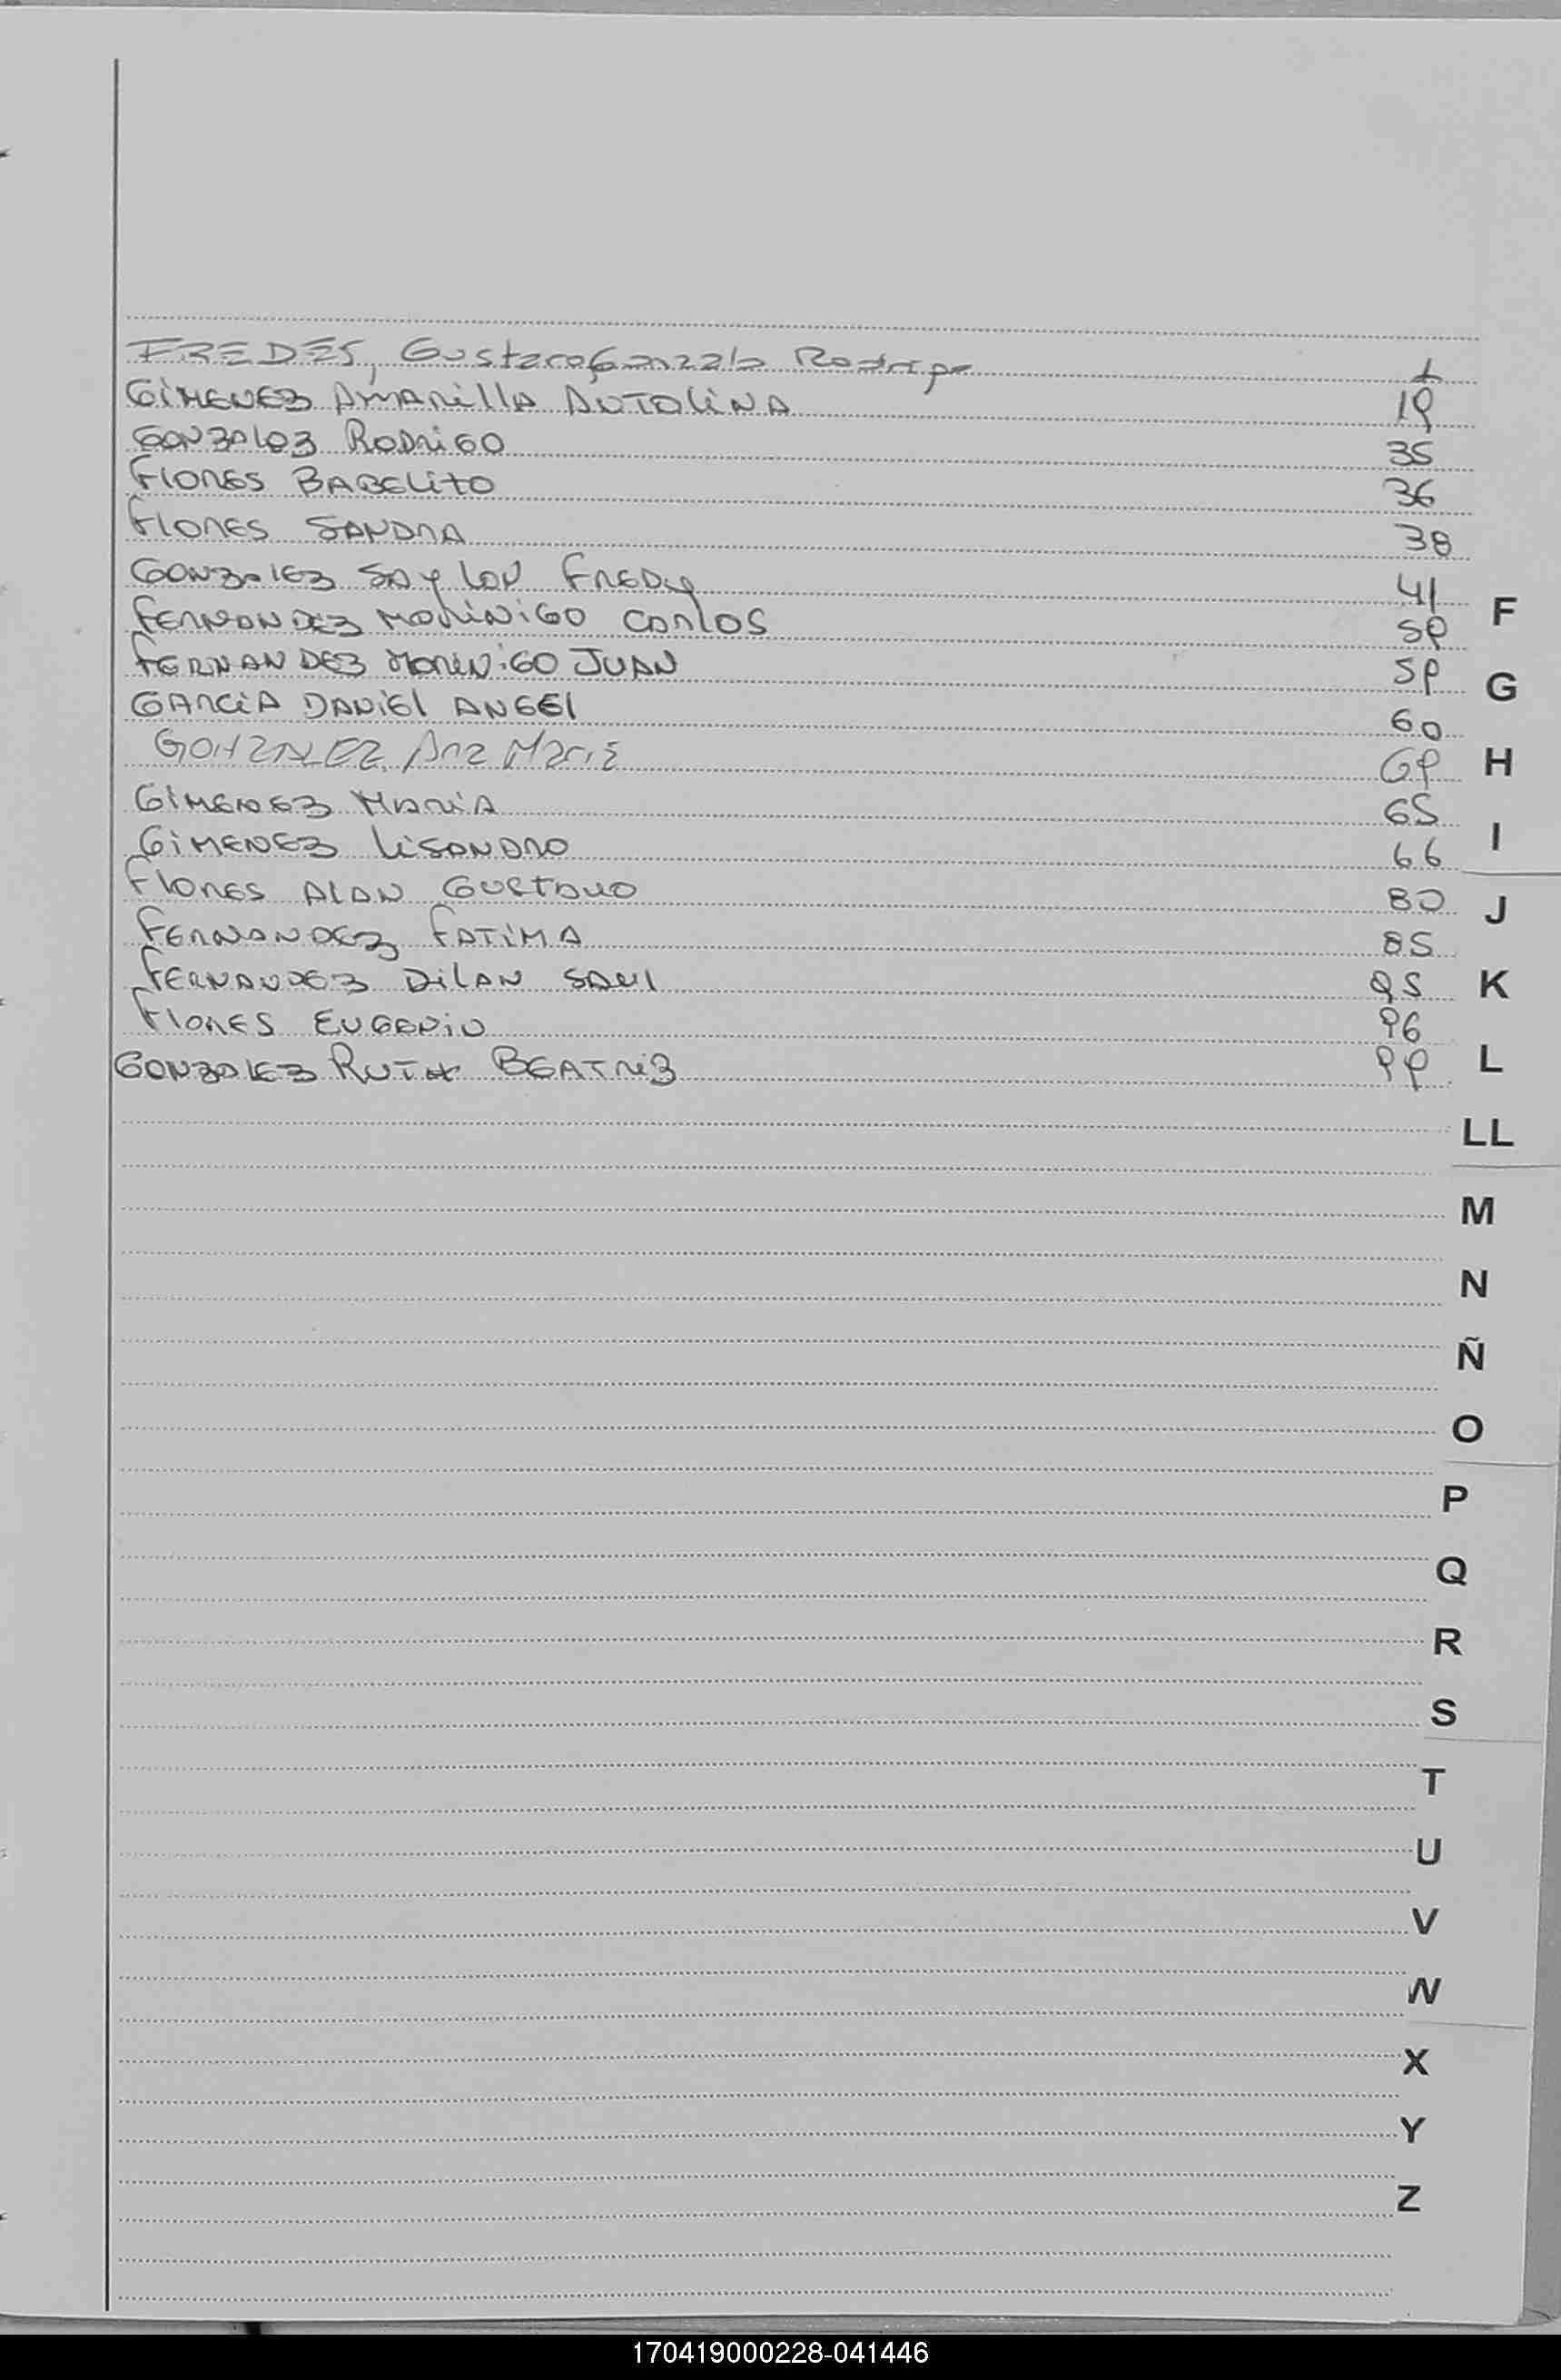 FREDES, Gustavo Gonzalo Rodrigo 1
GIMENEZ AMARILLA AUTOLINA 19
GONZALEZ RODRIGO 35
FLORES BABELITO 36
FLORES SANDRA 38
GONZALEZ SAYLON FREDY 41
FERNANDEZ MORINIGO CARLOS 59
FERNANDEZ MORINIGO JUAN 59
GARCIA DANIEL ANGEL 60
GONZALEZ, Ana Maria 69
GIMENEZ MARIA 65
GIMENEZ LISANDRO 66
FLORES ALAN GUSTAVO 80
FERNANDEZ FATIMA 85
FERNANDEZ DILAN SAUL 95
FLORES EUGENIO 96
GONZALEZ RUTH BEATRIZ 99
F
G
H
I
J
K
L
LL
M
N
Ñ
O
P
Q
R
S
T
U
V
W
X
Y
Z
170419000228-041446